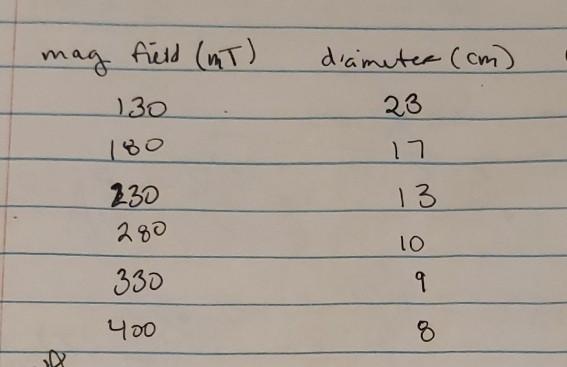 mag field (mT) diameter (cm)
130 23
180 17
230 13
280 10
330 9
400 8